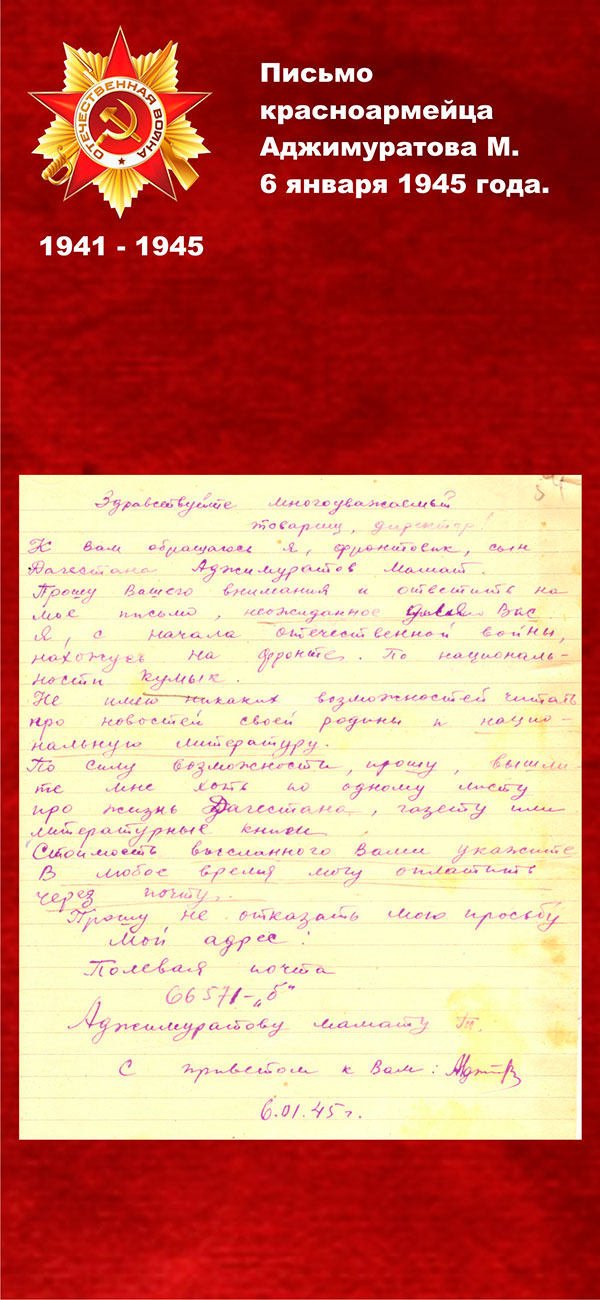 ОТЕЧЕСТВЕННАЯ ВОЙНА
1941 - 1945
Письмо
красноармейца
Аджимуратова М.
6 января 1945 года.
Здравствуйте многоуважаемый
товарищ, директор!
К вам обращаюсь я, фронтовик, сын
Дагестана Аджимуратов Мамат.
Прошу Вашего внимания и ответить на
мое письмо, неожиданное для Вас
Я, с начала отечественной войны,
нахожусь на фронте. По националь-
ности кумык.
Не имею никаких возможностей читать
про новостей своей родины и нацио-
нальную литературу.
По силу возможности, прошу, вышли-
те мне хоть по одному листу
про жизнь Дагестана, газету или
литературные книги
Стоимость высланного Вами укажите
В любое время могу оплатить
через почту.
Прошу не отказать мою просьбу
Мой адрес:
Полевая почта
66571-„б"
Аджимуратову мамату
С приветом к Вам:
6.01.45 г.